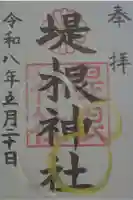 奉拝
堤根神社
令和八年五月二十日